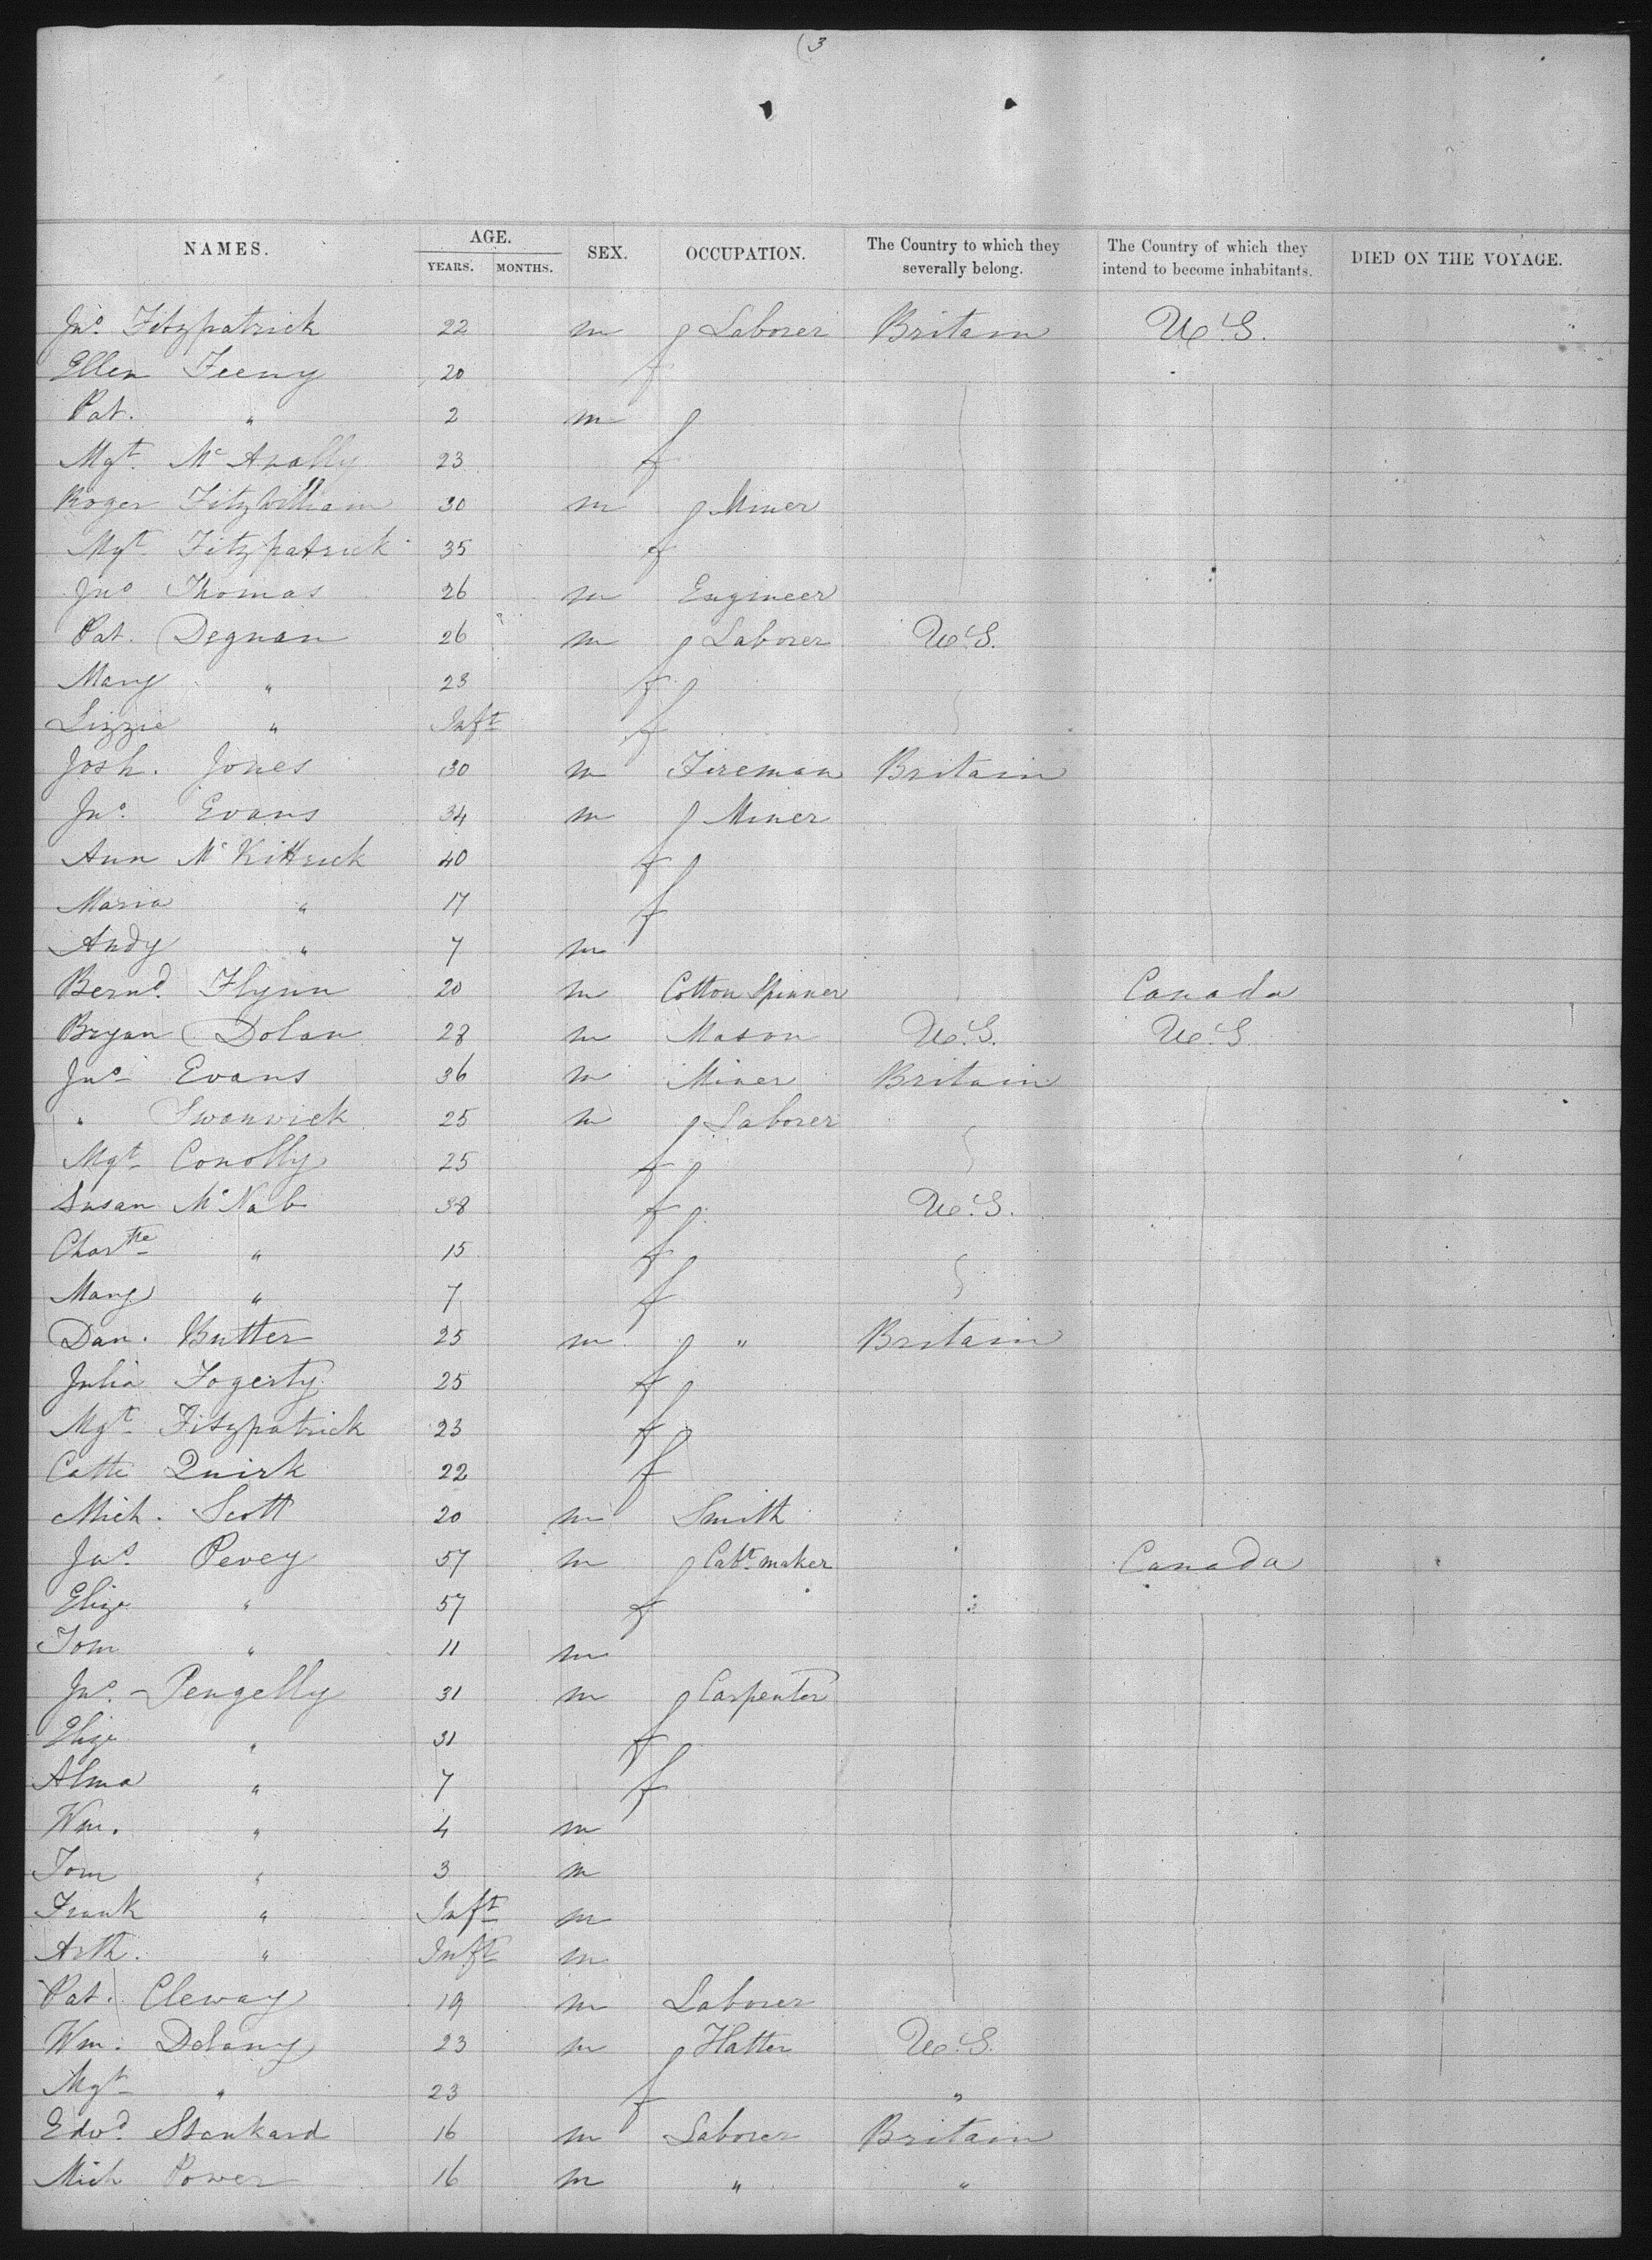 (3
NAMES. AGE. YEARS. MONTHS. SEX. OCCUPATION. The Country to which they severally belong. The Country of which they intend to become inhabitants. DIED ON THE VOYAGE.
Jno. Fitzpatrick 22 m Laborer Britain U.S.
Ellen Feeny 20 f
Pat. " 2 m
Mgt. Mc Anally 23 f
Roger Fitzwilliam 30 m Miner
Mgt. Fitzpatrick 35 f
Jno Thomas 26 m Engineer
Pat. Degnan 26 m Laborer U.S.
Mary " 23 f
Lizzie " Inft f
Josh. Jones 30 m Fireman Britain
Jno. Evans 34 m Miner
Ann Mc Kittrick 40 f
Maria " 17 f
Andy " 7 m
Bernd. Flynn 20 m Cotton Spinner Canada
Bryan Dolan 28 m Mason U.S. U.S.
Jno Evans 36 m Miner Britain
" Swanwick 25 m Laborer
Mgt Conolly 25 f
Susan Mc Nab 38 f U.S.
Chartte " 15 f
Mary " 7 f
Dan. Butter 25 m " Britain
Julia Fogerty 25 f
Mgt Fitzpatrick 23 f
Catte Quirk 22 f
Mich. Scott 20 m Smith
Jas. Pevey 57 m Cabt. maker Canada
Eliza " 57 f
Tom " 11 m
Jno. Pengelly 31 m Carpenter
Eliza " 31 f
Alma " 7 f
Wm. " 4 m
Tom " 3 m
Frank " Inft m
Arth. " Inft m
Pat. Cleway 19 m Laborer
Wm. Delany 23 m Hatter U.S.
Mgt " 23 f "
Edwd. Stankard 16 m Laborer Britain
Mich Power 16 m " "